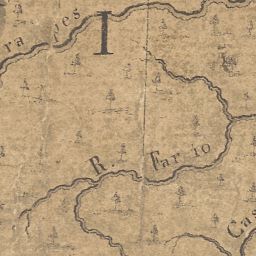 rajes
I
R. Fario
Cas